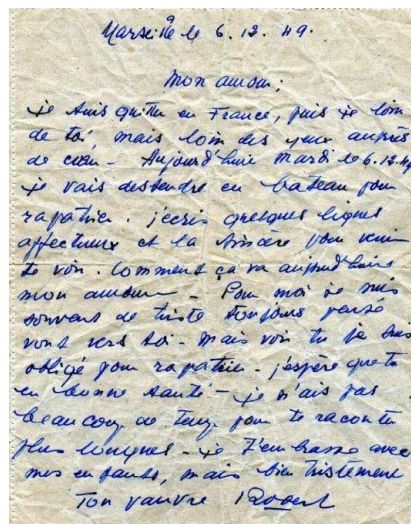 Marseille le 6.12.49.
Mon amour;
je suis quitter en France, puis je loin
de toi, mais loin des yeux auprès
de cœur - Aujourd'huie mardi le 6.12.49
je vais destendre en bateau pour
rapatrier. j'écris quelques lignes
affectueux et la sincère pour venir
te voir. Comment ça va aujourd'huie
mon amour - Pour moi je suis
souvent de triste toujours pensé
vont vers toi - mais voir tu je suis
obligé pour rapatrier - j'espère que tu
en bonne santé - je n'ais pas
beaucoup de temp pour te raconter
plus longues - je t'embrasse avec
mes enfants, mais bien tristement
Ton pauvre Robert